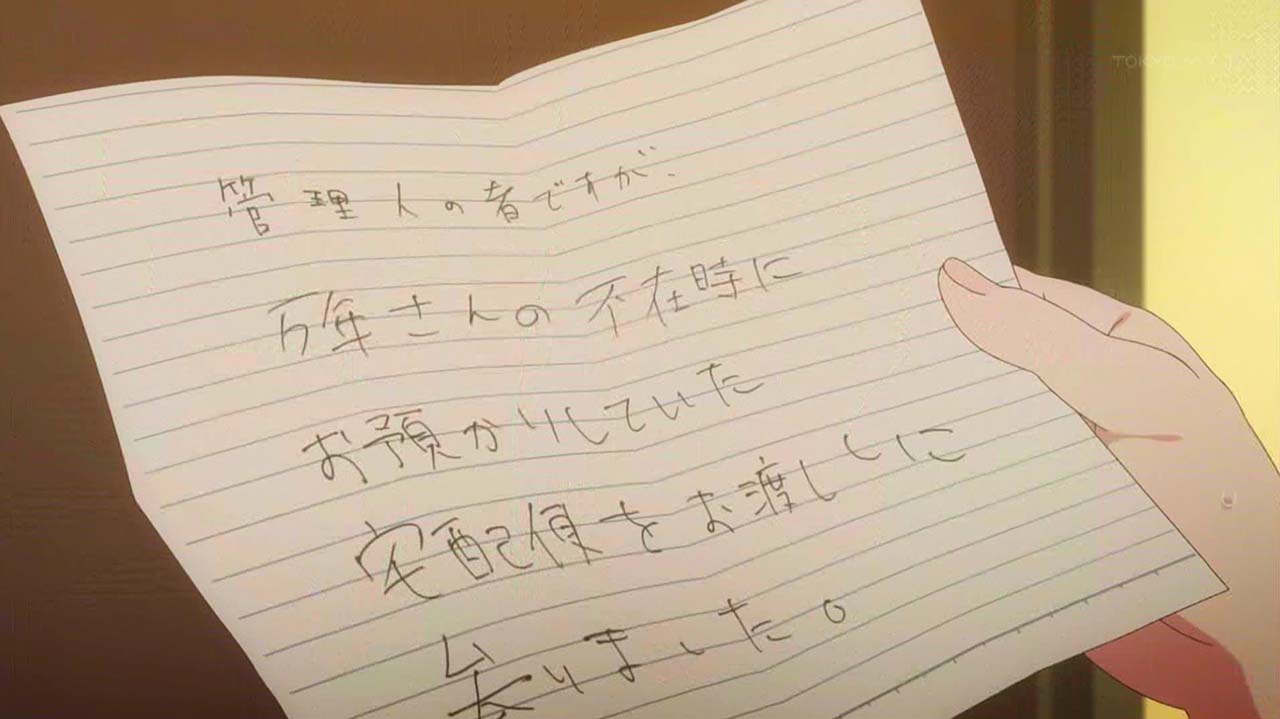 TOKYO MX
管理人の者ですが、
万年さんの不在時に
お預かりしていた
宅配便をお渡ししに
参りました。